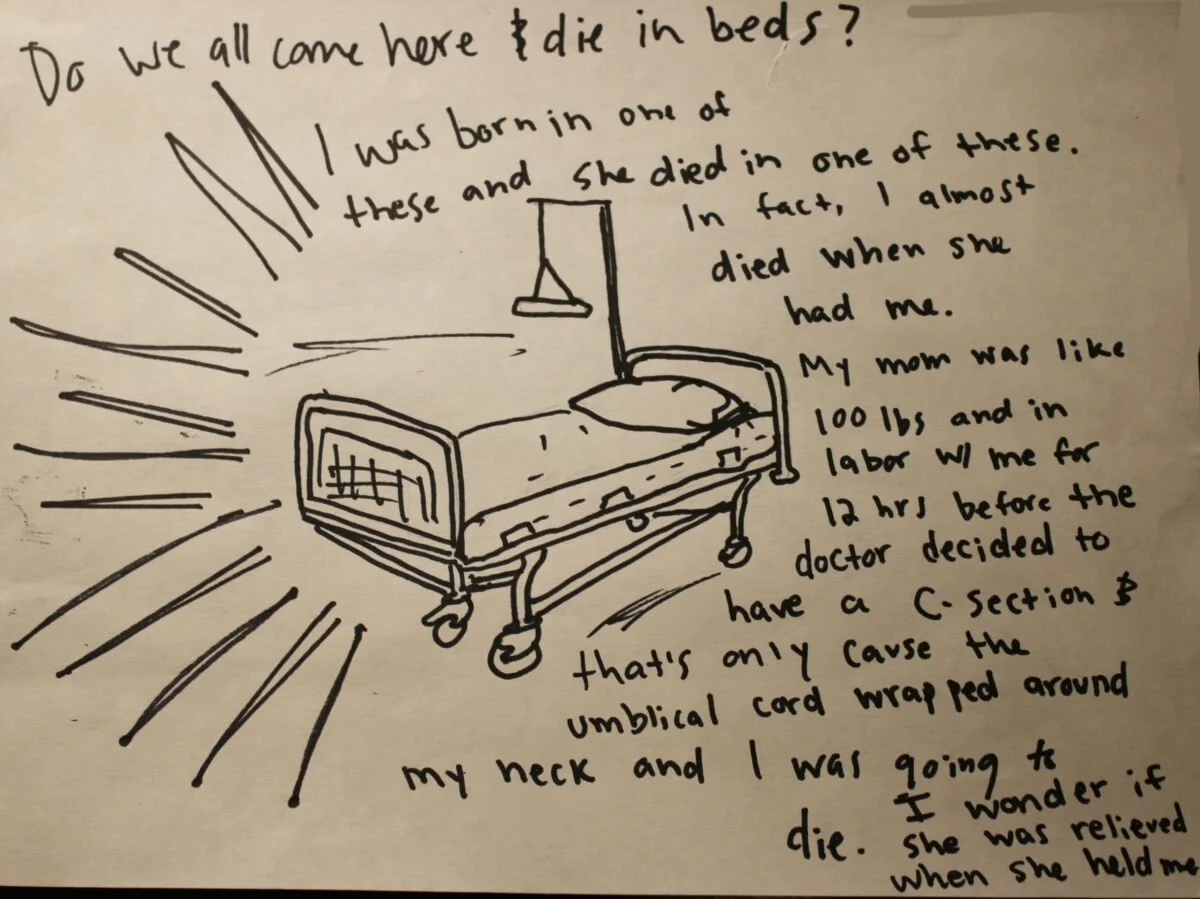 Do we all come here & die in beds?
I was born in one of
these and she died in one of these.
In fact, I almost
died when she
had me.
My mom was like
100 lbs and in
labor w/ me for
12 hrs before the
doctor decided to
have a C-section &
that's only cause the
umblical cord wrapped around
my neck and I was going to
die. I wonder if
she was relieved
when she held me